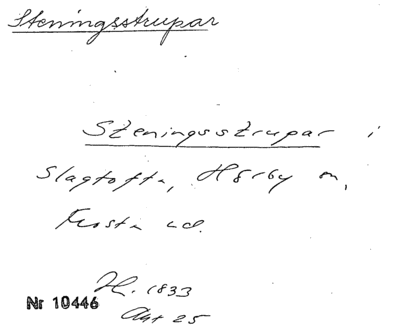 Steningsstrupar
Steningsstrupar i
Slagtofta, Hörby sn,
Frosta hd.
H. 1833
Nr 10446
Akt 25